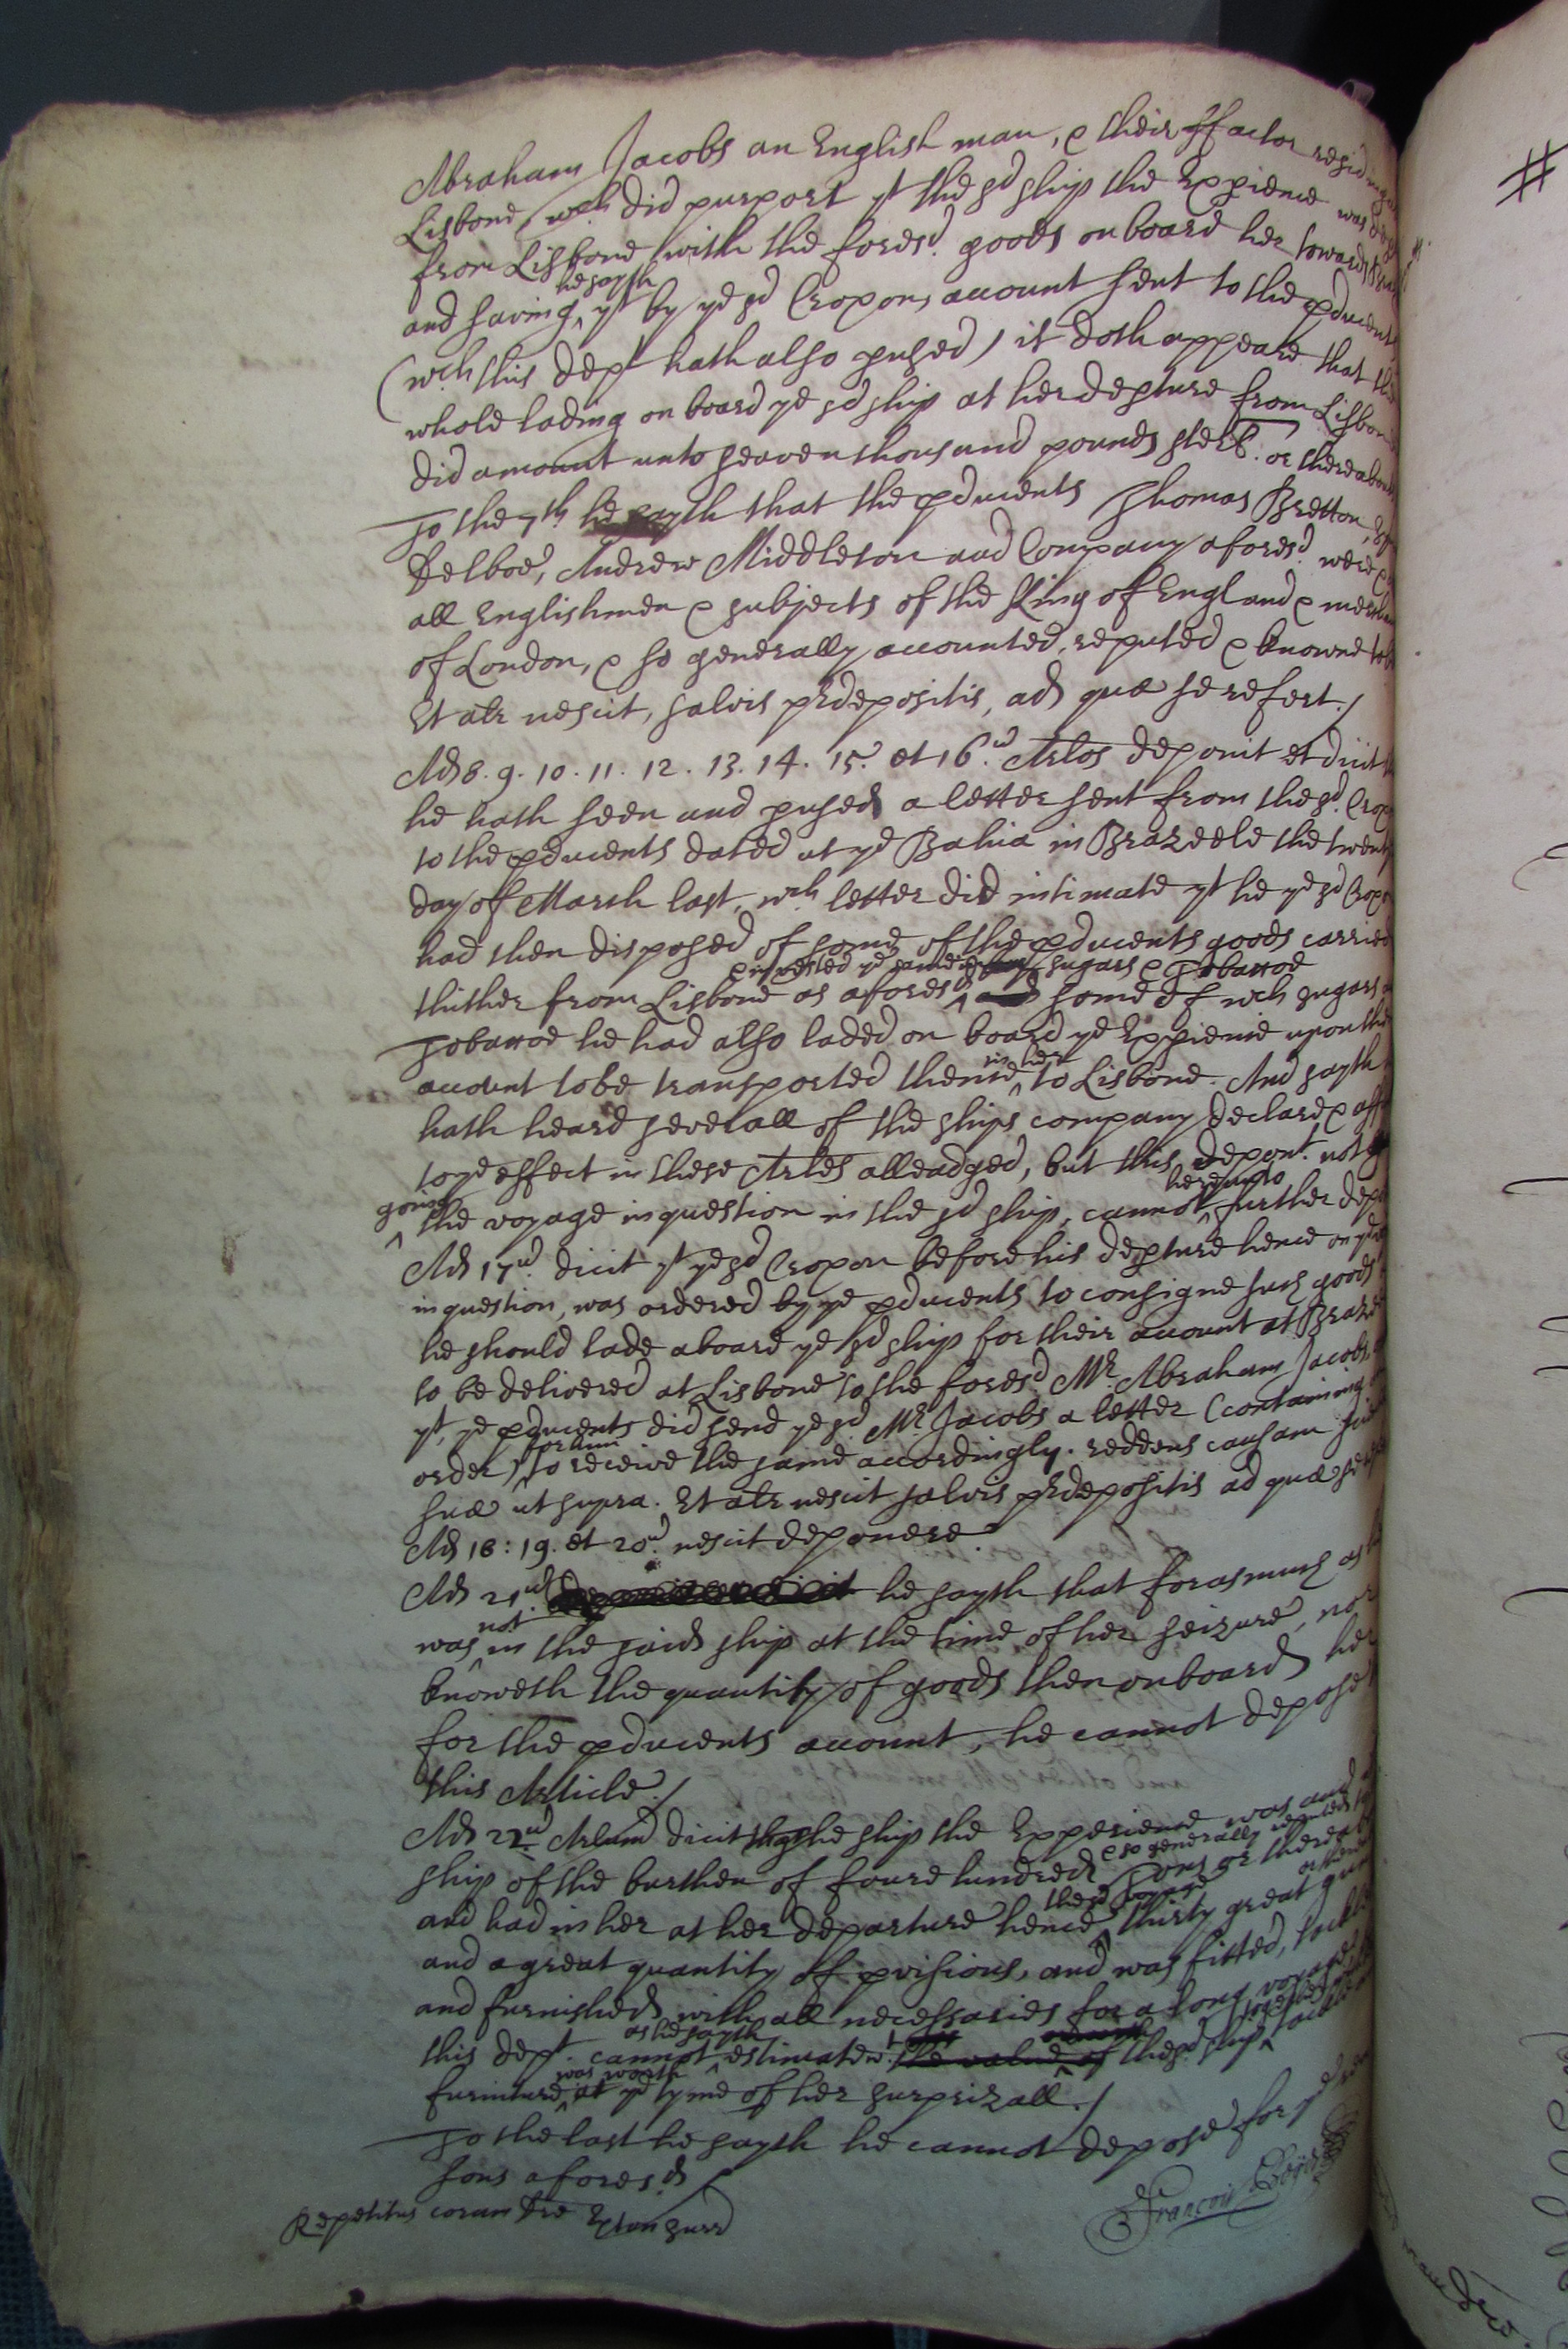 Abraham Jacobs an English man, & their ffactor residing
Lisbone, wch did purport yt the sd ship the Expience was
from Lisbone with the foresd. goods on board her towards
and saving, he sayth yt by ye sd Cropons account sent to the pducents
(wch this dept hath also pused) it doth appeare that the
whole lading on board ye sd ship at her depture from Lisbone
did amount unto seaven thousand pounds sterl. or thereabouts
To the 7th he sayth that the pducents Thomas Bretton,
Delboe, Andrew Middleton and Company aforesd. were
all Englishmen & subjects of the King of England &
of London, & so generally accounted, reputed & knowne
Et alr nescit, salvis prdepositis, ad quæ se refert./
Ad 8. 9. 10. 11. 12. 13. 14. 15. et 16.u Arlos deponit et dicit
he hath seen and pused a letter sent from the sd. Crop
to the pducents dated at ye Bahia in Brazeele the twent
day of March last, wch letter did intimate yt he ye sd Crop
had then disposed of some of the pducents goods carried
& invested ye same in sugars & Tobaccoe
thither from Lisbone as aforesd and some of wch sugars
Tobaccoe he had also laded on board ye Expience upon the
account to be transported thence in her to Lisbone. And sayth
hath heard severall of the ships company declare &
to ye effect in these Arles alleadged, but this depont. not
going the voyage in question in the sd ship, cannot hereunto further
Ad 17u. dicit yt ye sd Cropon before his depture hence on ye
in question, was ordered by ye pducents to consigne such goods
he should lade aboard ye sd ship for their account at
to be delivered at Lisbone to the foresd. Mr. Abraham Jacobs
yt ye pducents did send ye sd Mr. Jacobs a letter (containing
order) for him to receive the same accordingly. reddens causam
suæ ut supra. Et alr nescit salvis prdepositis ad quæ se
Ad 18: 19. et 20u. nescit deponere.
Ad 21u he sayth that forasmuch as
was not in the said ship at the time of her seizure, nor
knoweth the quantity of goods then onboard her
for the pducents account, he cannot depose
this Article./
Ad 22u Arlum dicit the ship the Experience was
ship of the burthen of foure hundred & so generally reputed Tons or
and had in her at her departure hence the sd voyage thirty great
and a great quantity of pvisions, and was fitted,
and furnished with all necessaries for a long voyage
this dept. cannot as he sayth estimate the value of the sd ship together
furniture was worth at ye tyme of her surprizall./
To the last he sayth he cannot depose for
sons aforesd
Repetitus coram